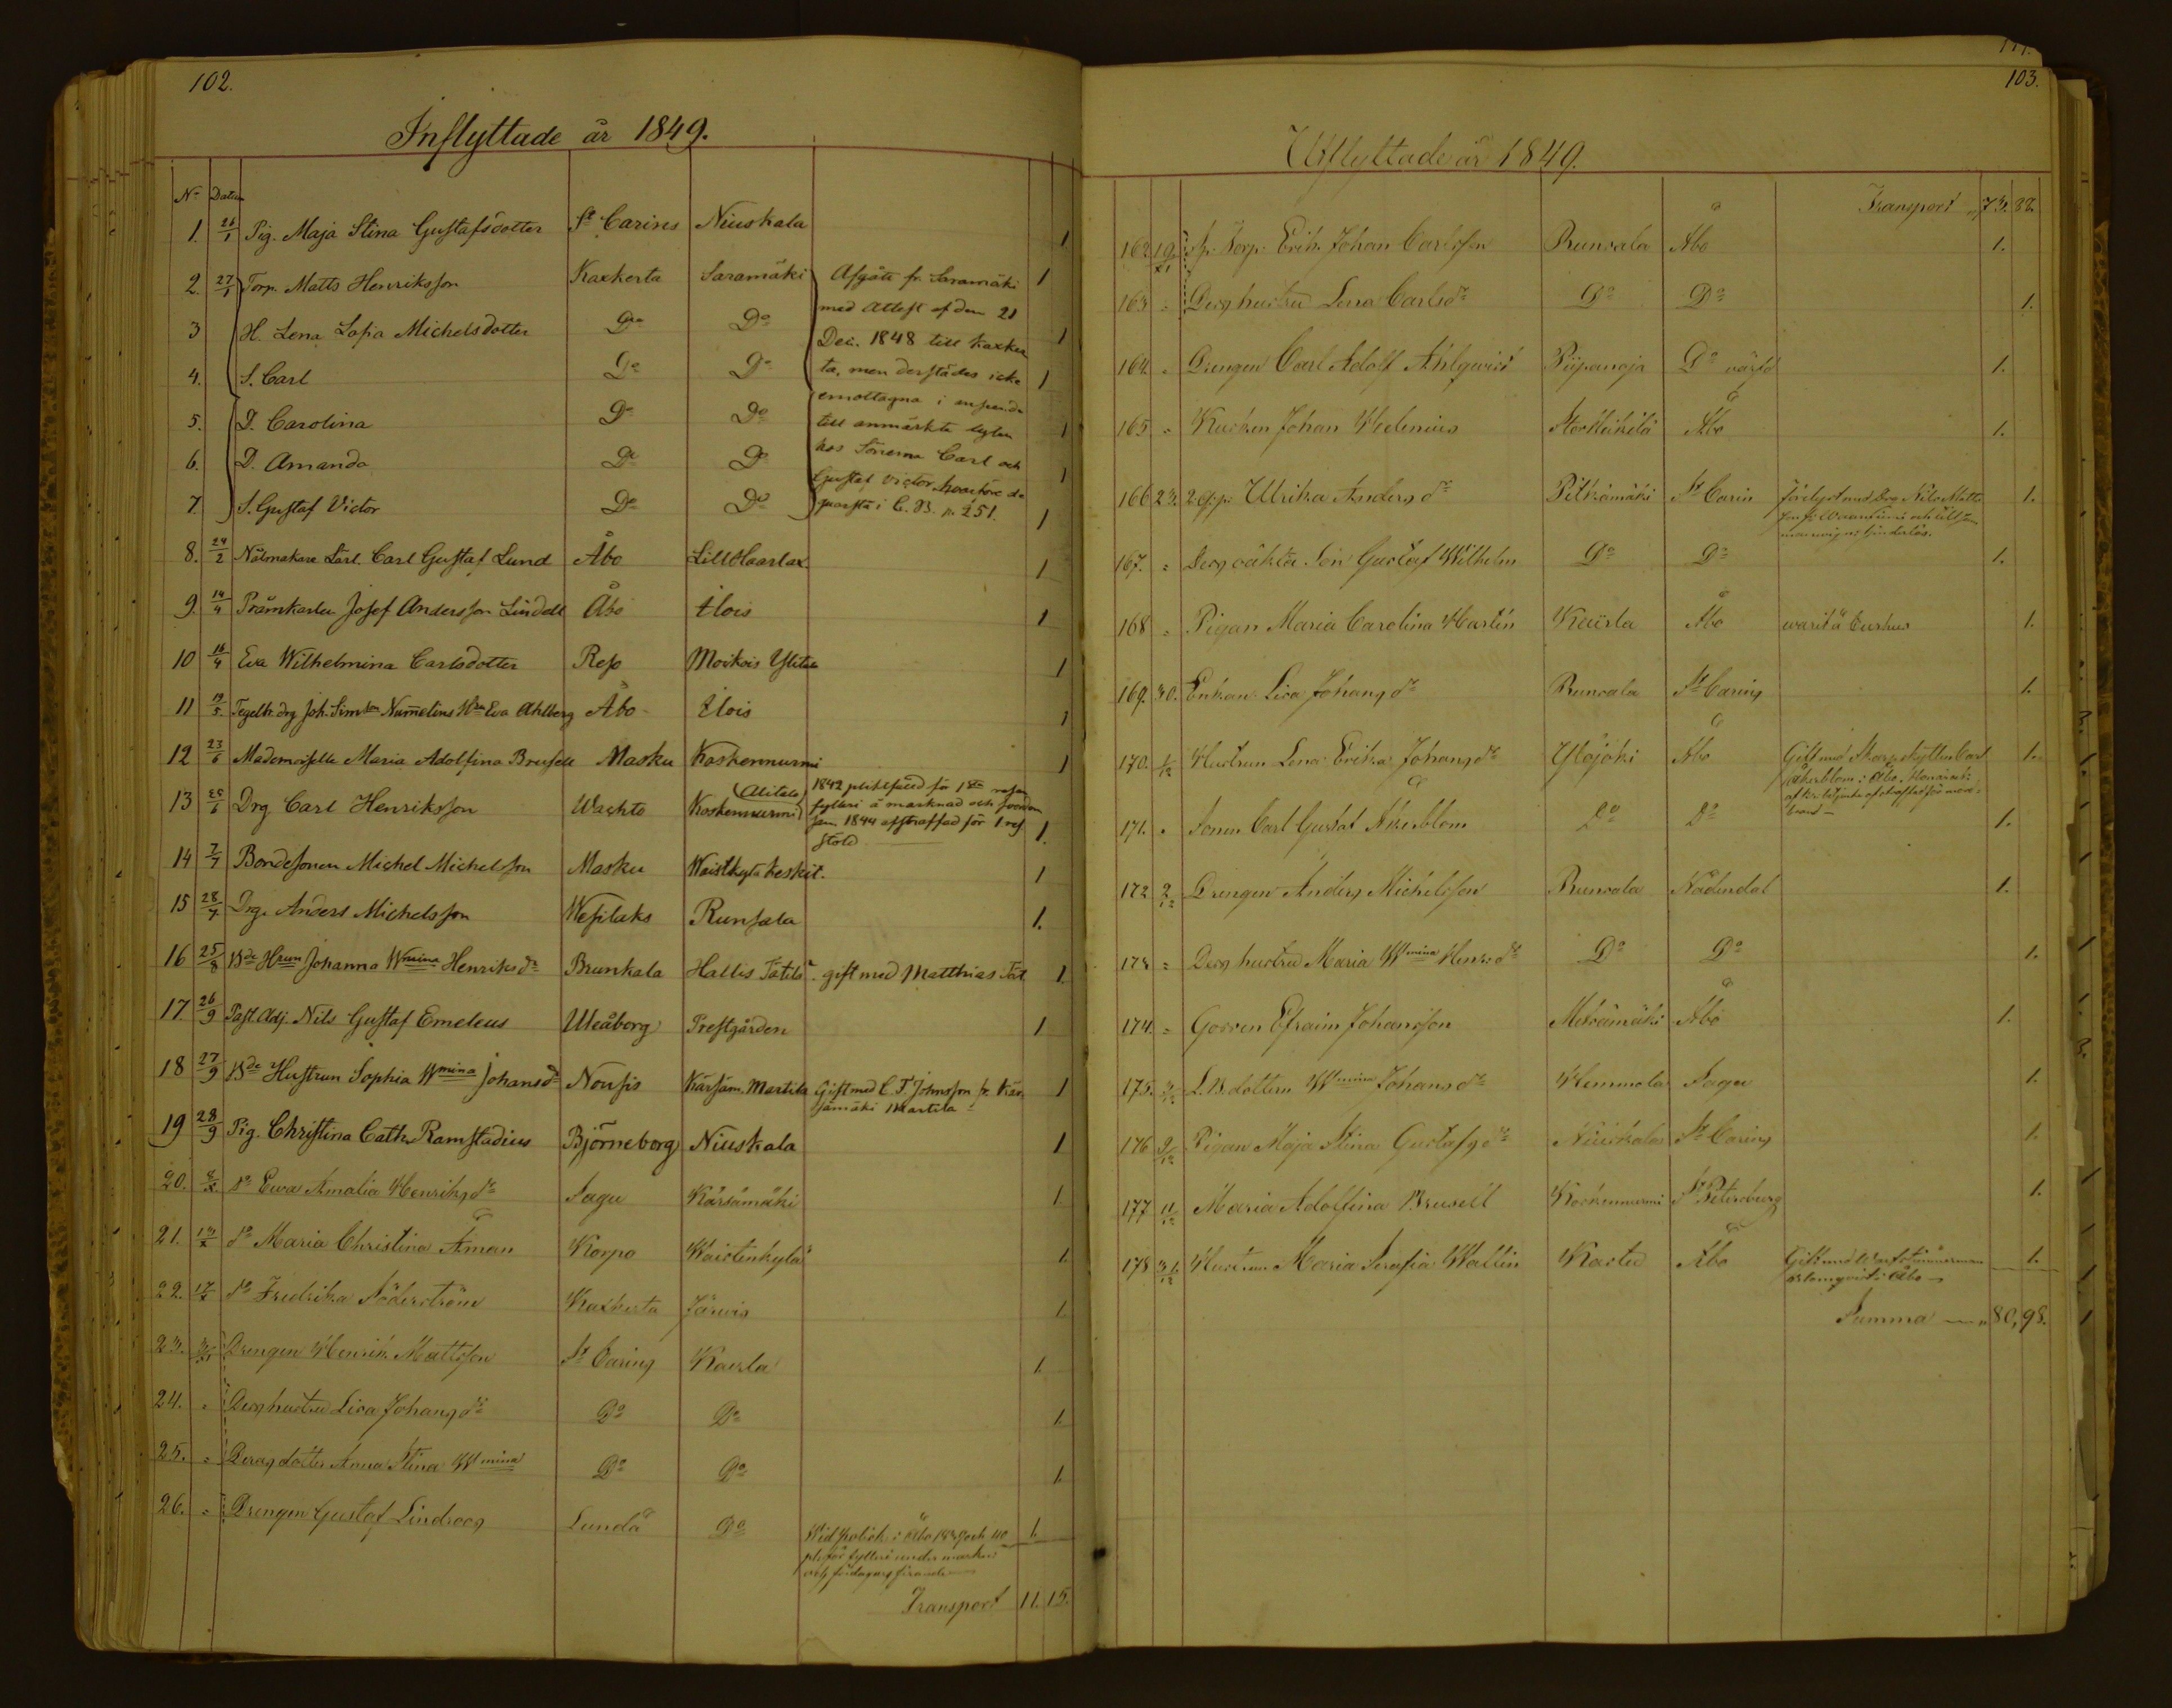 102.
Inflyttade år 1849.
No Datum
1. 26/1 Pig. Maja Stina Gustafsdotter St Carins Niuskala 1
2. 27/1 Torp. Matts Henriksson Kaxkerta Saramäki Afgått fr. Saramäki 1
med Attest af den 21
3 H. Lena Sofia Michelsdotter Do Do Dec. 1848 till Kaxker 1
4. S. Carl Do Do ta, men derstädes icke 1
emottagna i anseende
5. D. Carolina Do Do till anmärkte lyten 1
6. D. Amanda Do Do hos Sönerna Carl och 1
Gustaf Victor, hvarföre de
7. S. Gustaf Victor Do Do qvarstå i C. B. p. 251. 1
8. 24/2 Nålmakare Lärl. Carl Gustaf Lund Åbo Lill Haarlax 1
9. 14/4 Pråmkarlen Josef Andersson Lindell Åbo Ilois 1
10 16/4 Eva Wilhelmina Carlsdotter Reso Moikois Ylitalo 1
11 19/5 Tegelh. drg Joh. Simson Numelins Wa Eva Ahlberg Åbo Ilois 1
12 23/6 Mademoiselle Maria Adolfina Brusell Masku Koskennurmi 1
13 25/6 Drg Carl Henriksson Wachto Koskennurmi Alitalo 1842 pliktfäld för 1sta resan
fylleri å marknad och
1844 afstraffad för 1 res 1.
stöld
14 7/7 Bondesonen Michel Michelsson Masku Waistkylä Keskit. 1
15 28/7 Drg. Anders Michelsson Wesilaks Runsala 1.
16 25/8 Bde Hrun Johanna Wmina Henriksdr Brunkala Hallis Tätilä gift med Matthias Tät. 1
17. 26/9 Past. Adj. Nils Gustaf Emeleus Uleåborg Prestgården 1
18 27/9 Bde Hustrun Sophia Wmina Johansdr Nousis Kärsäm. Martila Gift med C. F. Johnsson fr. Kär- 1
sämäki Martila
19 28/9 Pig. Christina Cath. Ramstadius Björneborg Niuskala 1
20. Do Ewa Amalia Henriksdr Sagu Kärsämäki 1.
21. 13/x Do Maria Christina Åman Korpo Waistenkylä 1.
22. 17/x Do Fredrika Söderström Kaxkerta Järwis 1.
23. Drengen Henrik Mattsson St Carins Kairla 1.
24. " Dess hustru Lisa Johansdr Do Do 1.
25. " Deras dotter Anna Stina Wmina Do Do 1.
26. " Drengen Gustaf Lindroos Lundo Do Wid polisk. i Åbo 1839 och 40 1.
pl. för fylleri under marken
Transport 11. 15.
103.
Utflyttade år 1849.
Transport 73. 88.
162. 19/XI Sp. Torp. Erik Johan Carlsson Runsala Åbo 1.
163 " Dess hustru Lena Carlsdr Do Do 1.
164. " Drengen Carl Adolf Ahlqvist Piipanoja Do 1.
165 " Kusken Johan Helenius Stor Heikilä Åbo 1.
166 23. Ulrika Andersdr Pitkämäki St Carin 1.
167. " Dess oäkta Son Gustaf Wilhelm Do Do 1.
168 " Pigan Maria Carolina Martin Kairla Åbo warit å Curhus 1.
169. 30. Enkan Lisa Johansdr Runsala St Carins 1.
170. 1/12 Hustrun Lena Erika Johansdr Ylöjoki Åbo Gift med Skarpskytten Carl 1.
Åkerblom i Åbo,
171. " Sonen Carl Gustaf Åkerblom Do Do 1.
172 2/12 Drengen Anders Michelsson Runsala Nådendal 1.
173 " Dess hustru Maria Wmina Henr:dr Do Do 1.
174. " Gossen Efraim Johansson Metsämäki Åbo 1.
175. L. B. dottern Wmina Johansdr Hemmola Sagu 1.
176 9/12 Pigan Maja Stina Gustafsdr Niuskala St Carins 1.
177 11/12 Maria Adolfina Brusell Koskennurmi St Petersburg 1.
178 31/12 Hustrun Maria Serafia Wallin Karlu Åbo Gift med 1.
i Åbo
Summa 80, 98.